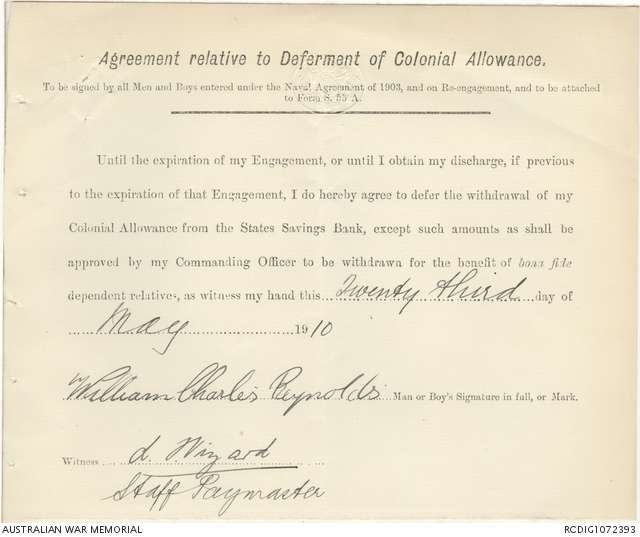 Agreement relative to Deferment of Colonial Allowance.
To be signed by all Men and Boys entered under the Naval Agreement of 1903, and on Re-engagement, and to be attached
to Form S. 55 A.
Until the expiration of my Engagement, or until I obtain my discharge, if previous
to the expiration of that Engagement, I do hereby agree to defer the withdrawal of my
Colonial Allowance from the States Savings Bank, except such amounts as shall be
approved by my Commanding Officer to be withdrawn for the benefit of bona fide
dependent relatives, as witness my hand this Twenty third day of
May 1910
William Charles Reynolds Man or Boy's Signature in full, or Mark.
Witness L. Wizard
Staff Paymaster
AUSTRALIAN WAR MEMORIAL RCDIG1072393